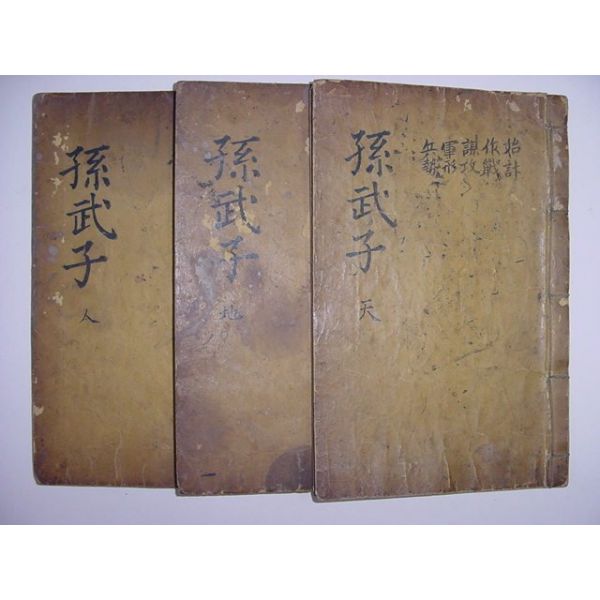 孫武子
天
始計
作戰
謀攻
軍形
兵勢
孫武子
地
一
孫武子
人